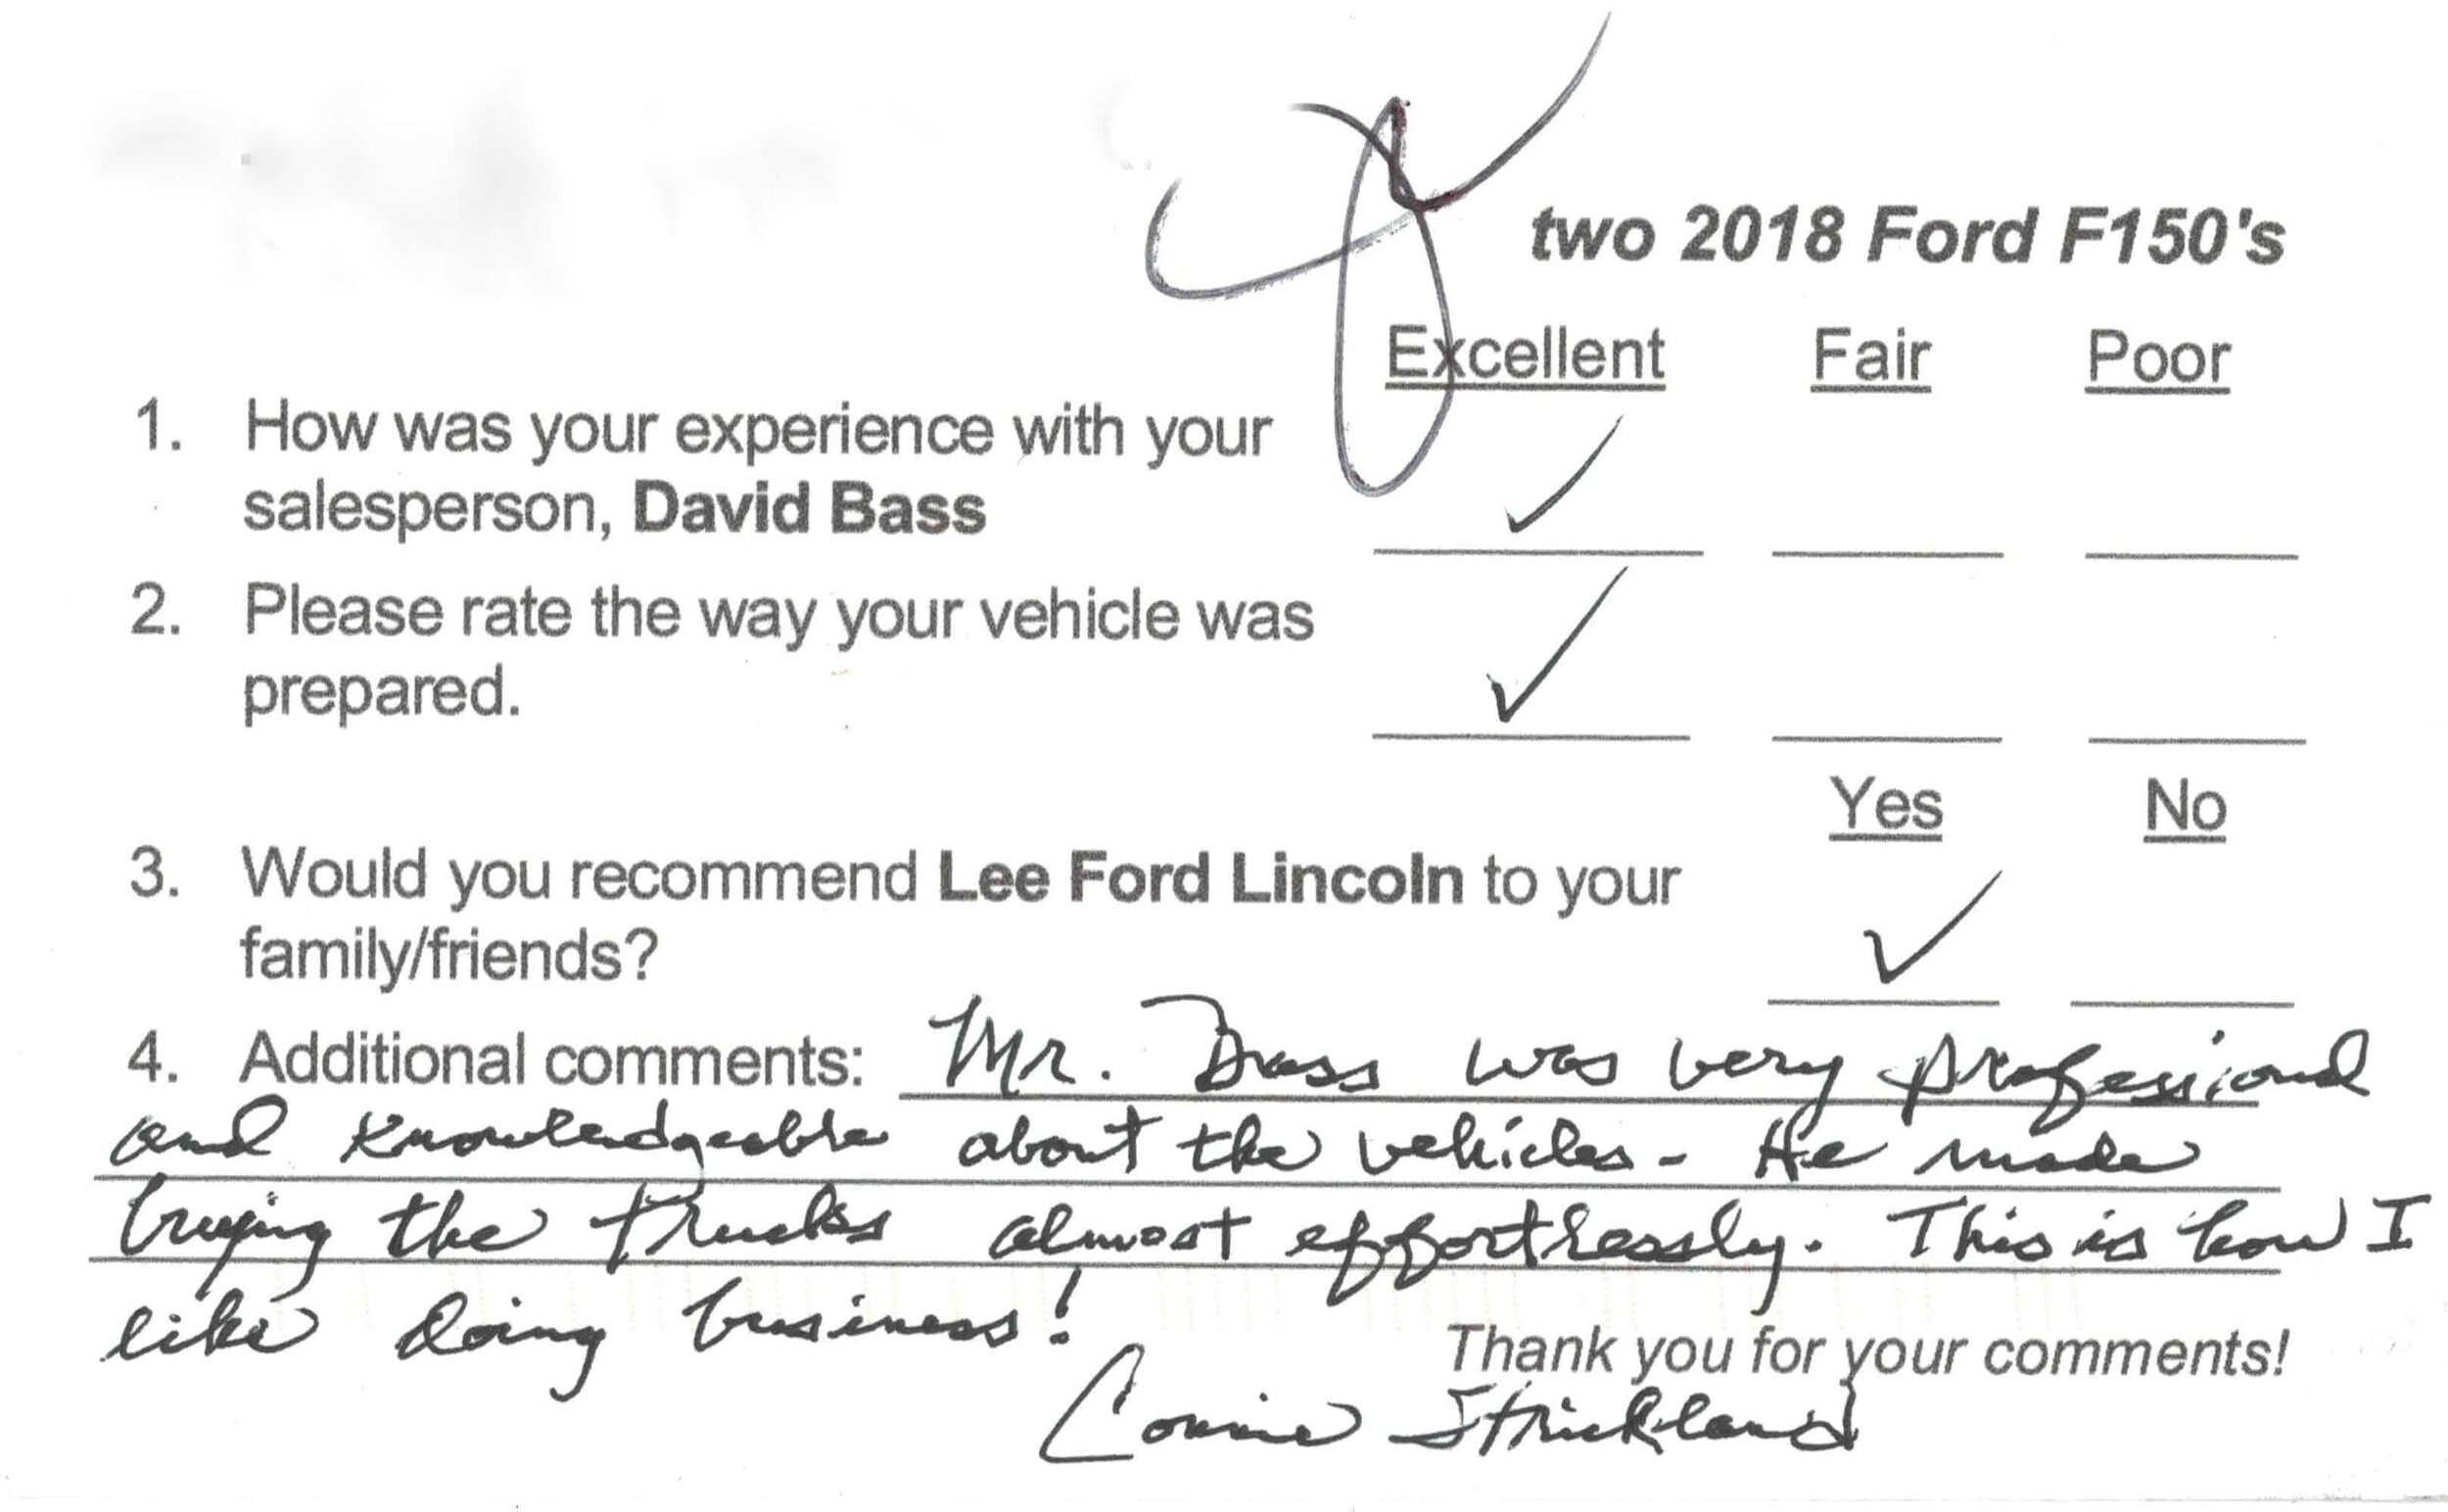 two 2018 Ford F150's
Excellent Fair Poor
1. How was your experience with your
salesperson, David Bass
2. Please rate the way your vehicle was
prepared.
Yes No
3. Would you recommend Lee Ford Lincoln to your
family/friends?
4. Additional comments: Mr. Bass was very professional
and knowledgeable about the vehicles. He made
buying the trucks almost effortlessly. This is how I
like doing business!
Thank you for your comments!
Connie Strickland